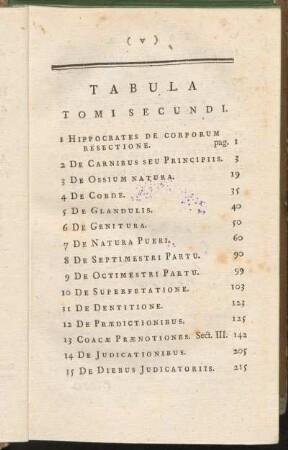 ( v )
TABULA
TOMI SECUNDI.
1 HIPPOCRATES DE CORPORUM
RESECTIONE. pag. 1
2 DE CARNIBUS SEU PRINCIPIIS. 3
3 DE OSSIUM NATURA. 19
4 DE CORDE. 35
5 DE GLANDULIS. 40
6 DE GENITURA. 50
7 DE NATURA PUERI. 60
8 DE SEPTIMESTRI PARTU. 90
9 DE OCTIMESTRI PARTU. 99
10 DE SUPERFETATIONE. 103
11 DE DENTITIONE. 123
12 DE PRÆDICTIONIBUS. 125
13 COACÆ PRÆNOTIONES. Sect. III. 142
14 DE JUDICATIONIBUS. 205
15 DE DIEBUS JUDICATORIIS. 215